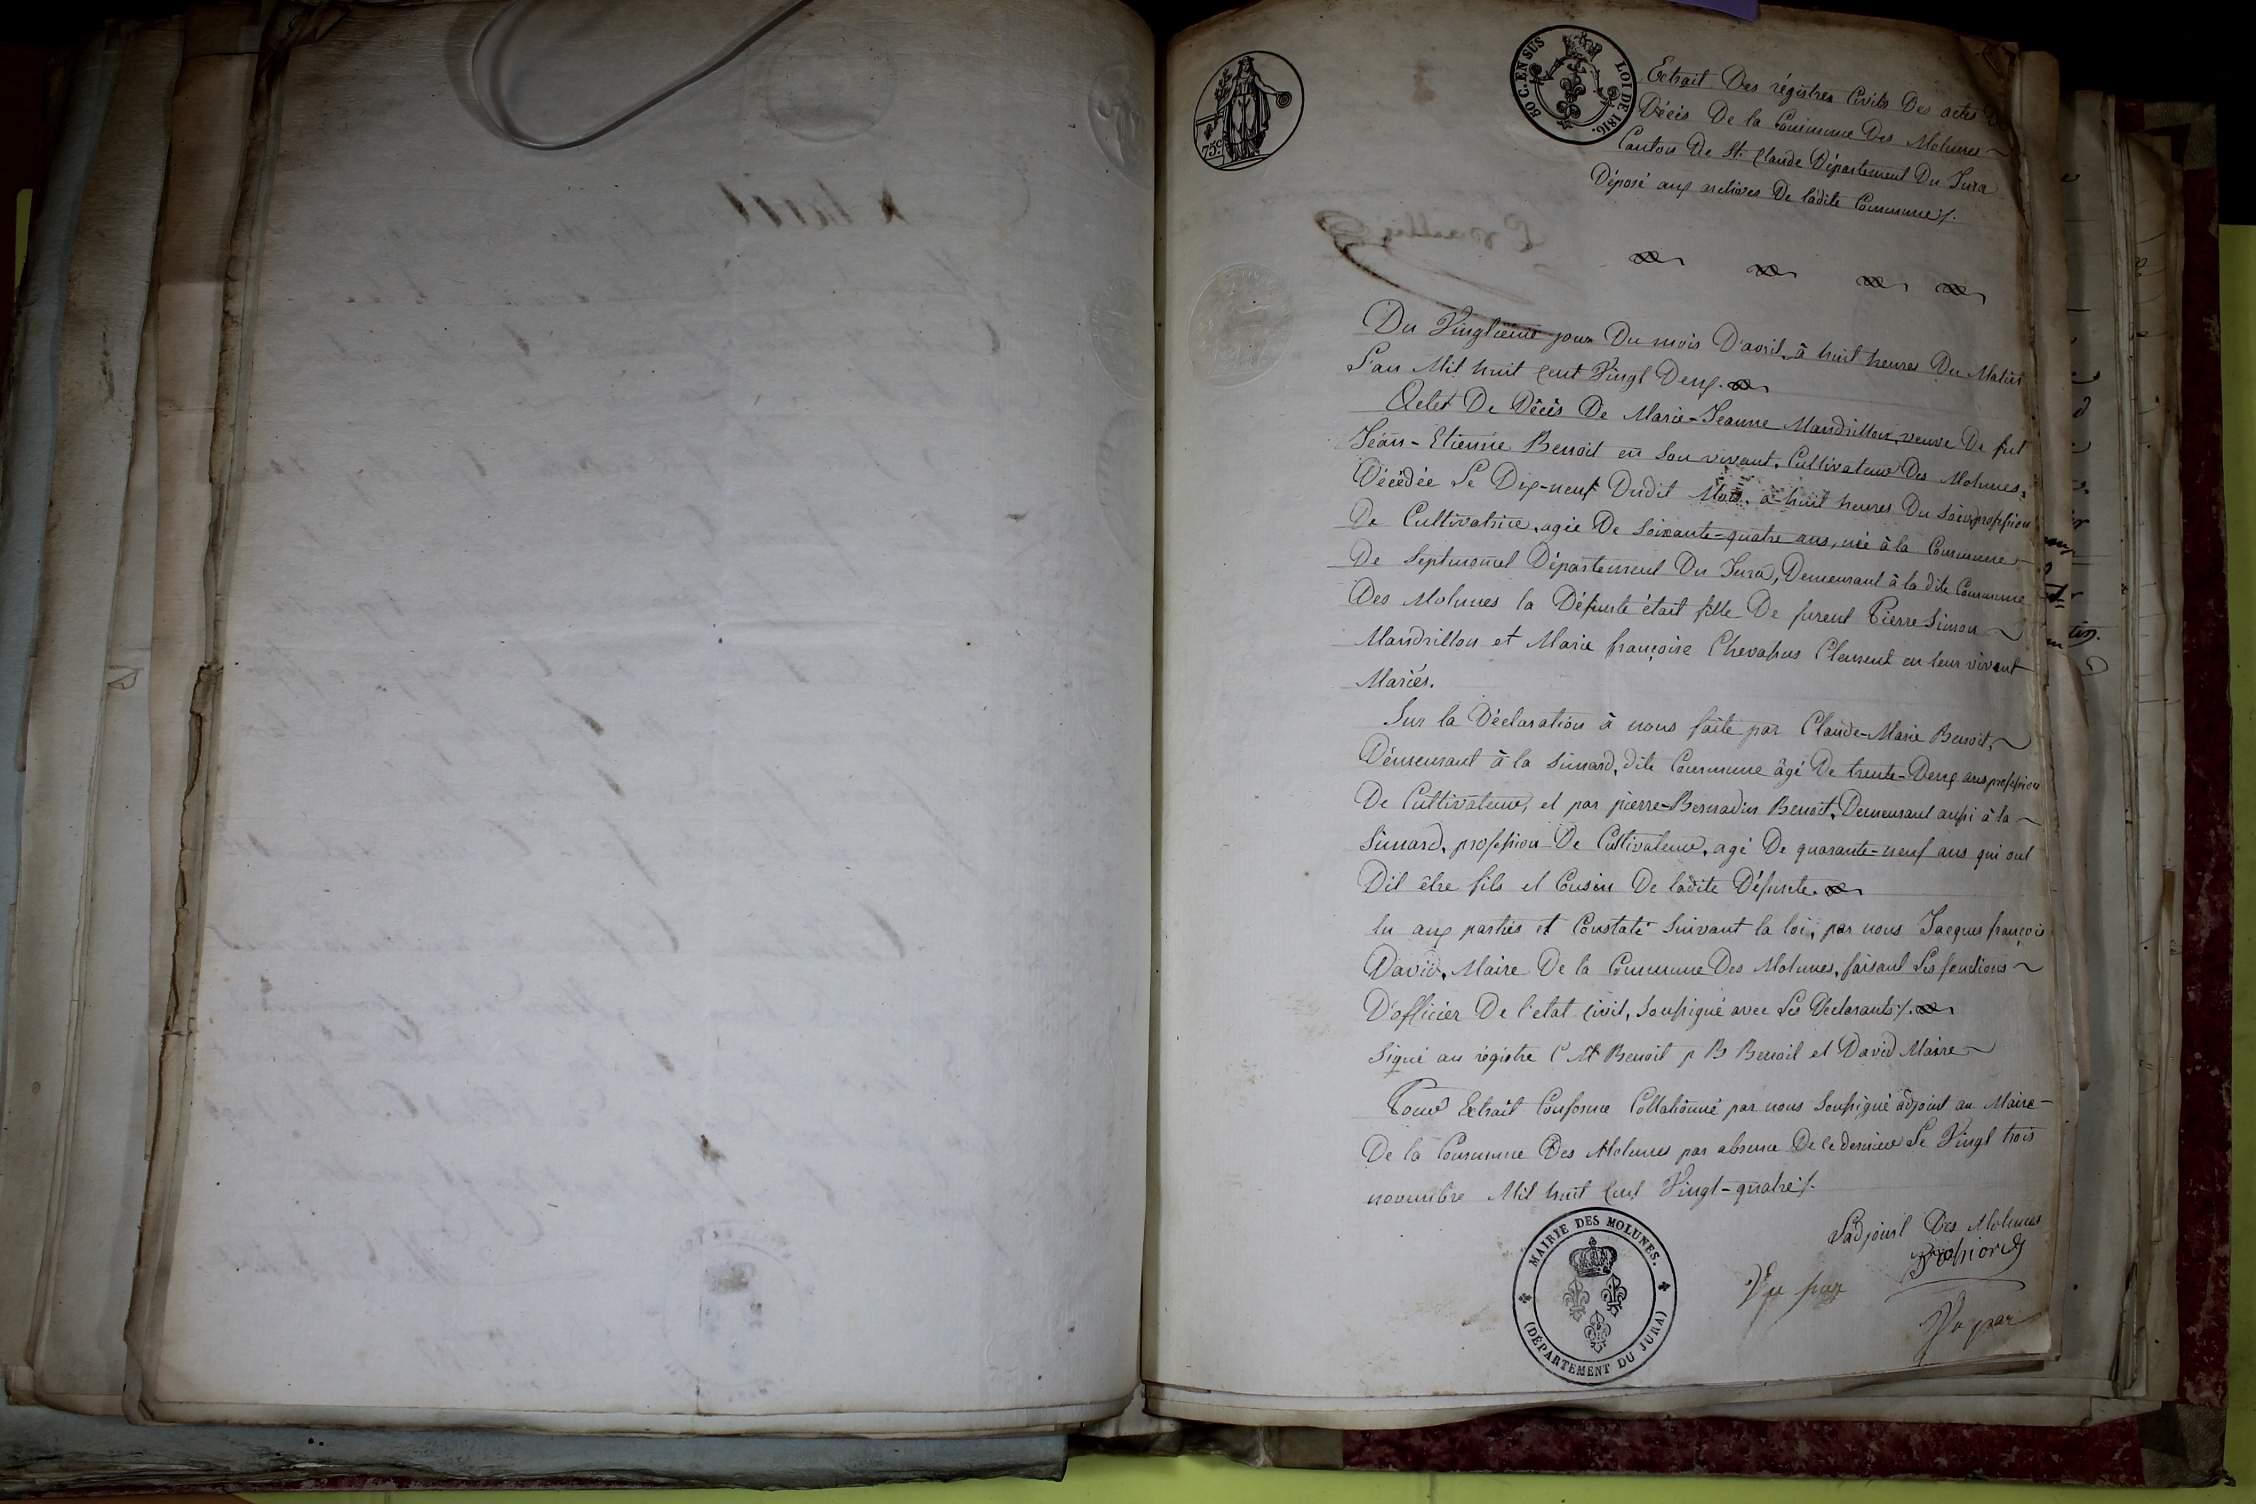 75c
80 C. EN SUS
LOI DE 1816.
Extrait Des régistres Civils Des actes De
Décès De la Commune Des Molunes
Canton De St. Claude Département Du Jura
Déposé aux archives De ladite Commune ⁒.
Du Vingtième jour Du mois D'avril, à huit heures Du Matin
L'an Mil huit cent Vingt Deux.
Actet De Décès De Marie-Jeanne Mandrillon, veuve De fut
Jean-Etienne Benoit en son vivant, Cultivateur Des Molunes,
Décédée Le Dix-neuf Dudit Mois, à huit heures Du soir, profession
De Cultivatrice, agée De soixante-quatre ans, née à la Commune
De Septmoncel Département Du Jura, Demeurant à la dite Commune
Des Molunes la Défunte était fille De furent Pierre Simon
Mandrillon et Marie françoise Chevassus Clement en leur vivant
Mariés.
Sur la Déclaration à nous faite par Claude-Marie Benoit,
Démeurant à la Simard, dite Commune âgé De trente-Deux ans profession
De Cultivateur, et par pierre-Bernadin Benoit, Demeurant aussi à la
Simard, profession De Cultivateur, agé De quarante-neuf ans qui ont
Dit être fils et Cousin De ladite Défunte.
lu aux parties et Constaté Suivant la loi, par nous Jacques françois
David, Maire De la Commune Des Molunes, faisant Les fonctions
D'officier De l'etat Civil, Soussigné avec Les Déclarants ⁒.
Signé au régistre C M Benoit p B Benoit et David Maire
Pour Extrait Conforme Collationné par nous Soussigné adjoint au Maire
De la Commune Des Molunes par absence De ce dernier Le Vingt trois
novembre Mil huit Cent Vingt-quatre ⁒.
L'adjoint Des Molunes
MAIRIE DES MOLUNES.
(DÉPARTEMENT DU JURA)
Vu par
Vu par